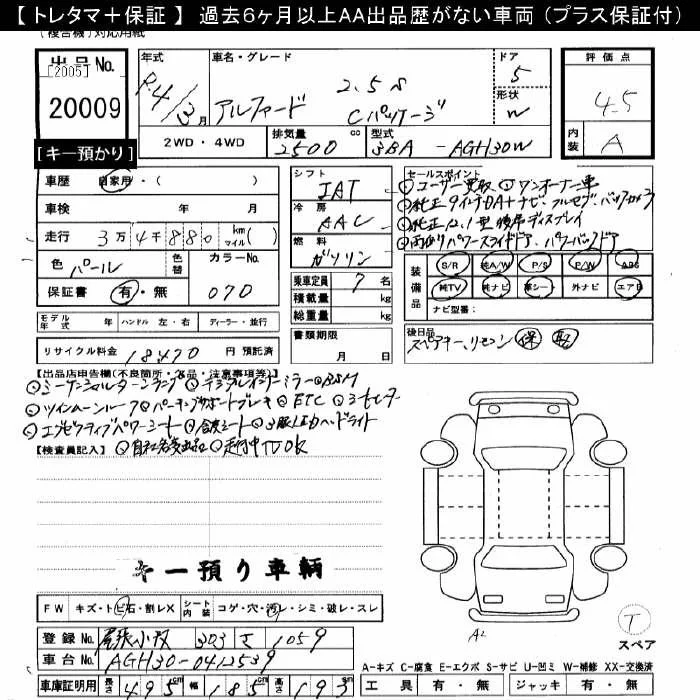 【 トレタマ＋保証 】 過去6ヶ月以上AA出品歴がない車両（プラス保証付）
(複合機)対応用紙
出品No.
[2005]
20009
[キー預かり]
年式
R4/3月
車名・グレード
アルファード 2.5S Cパッケージ
ドア
5
形状
W
2WD・4WD
排気量
2500 cc
型式
3BA - AGH30W
評価点
4.5
内装
A
車歴 自家用・( )
車検 年 月
走行 3万4千880 km マイル( )
色 パール
色替
カラーNo.
070
保証書 有・無
シフト
IAT
冷房
AAC
燃料
ガソリン
乗車定員 7名
積載量 kg
総重量 kg
セールスポイント
①ユーザー買取 ②ワンオーナー車
③純正9インチDA+ナビ、フルセグ、バックカメラ
④純正12.1型後席ディスプレイ
⑤両側パワースライドドア、パワーバックドア
装備品
S/R 純A/W P/S P/W ABS
純TV 純ナビ 革シート 外ナビ エアB
ナビ型番:
モデル年式 年 ハンドル 左・右 ディーラー・並行
リサイクル料金 18470 円 預託済
書類期限
月 日
後日品
スペアキー、リモコン 保 取
【出品店申告欄(不良箇所・欠品・注意事項等)】
シーケンシャルターンランプ デジタルインナーミラー BSM
ツインムーンルーフ パーキングサポートブレーキ ETC シートヒーター
エグゼクティブパワーシート 合皮シート 3眼LEDヘッドライト
【検査員記入】
自社名義出品 走行中TVOK
キー預り車輌
FW キズ・トビ石・割レX シート内装 コゲ・穴・汚レ・シミ・破レ・スレ
登録No. 尾張小牧 303 さ 1059
車台No. AGH30-0412539
車庫証明用 長さ 495 cm 幅 185 cm 高さ 193 cm
A2
T
スペア
A-キズ C-腐食 E-エクボ S-サビ U-凹ミ W-補修 XX-交換済
工具 有・無 ジャッキ 有・無